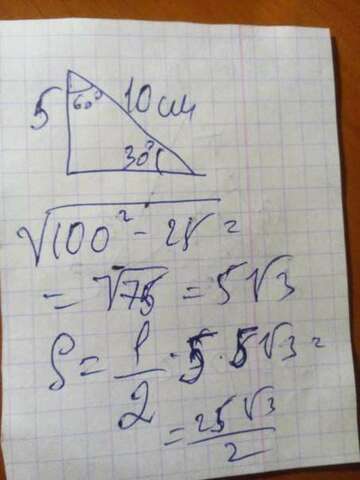 5 60° 10 см
30°
√100² - 25 =
= √75 = 5√3
S = 1/2 · 5 · 5√3 =
= 25√3/2